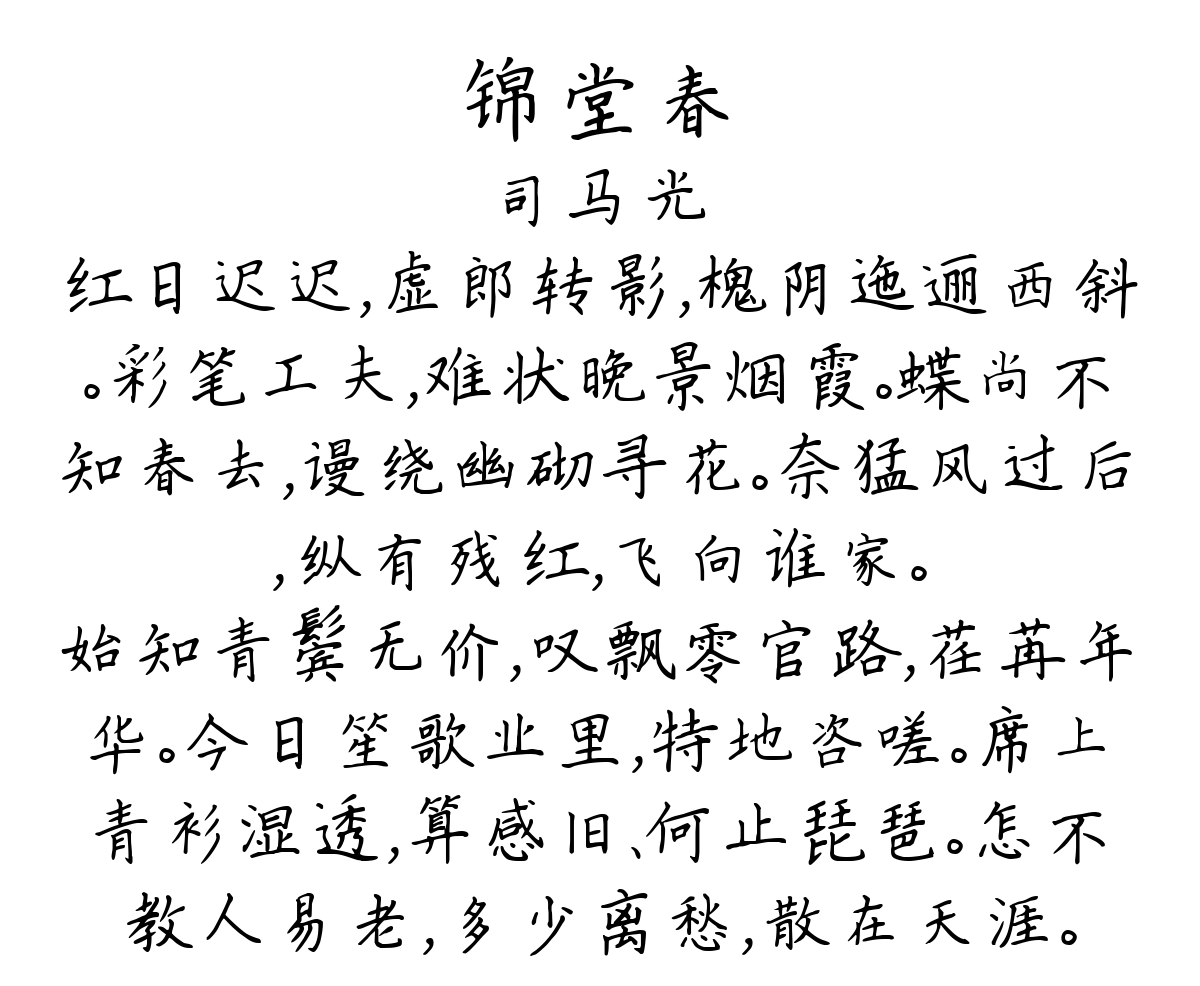 锦堂春
司马光
红日迟迟,虚郎转影,槐阴迤逦西斜
。彩笔工夫,难状晚景烟霞。蝶尚不
知春去,谩绕幽砌寻花。奈猛风过后
,纵有残红,飞向谁家。
始知青鬓无价,叹飘零官路,荏苒年
华。今日笙歌业里,特地咨嗟。席上
青衫湿透,算感旧、何止琵琶。怎不
教人易老,多少离愁,散在天涯。